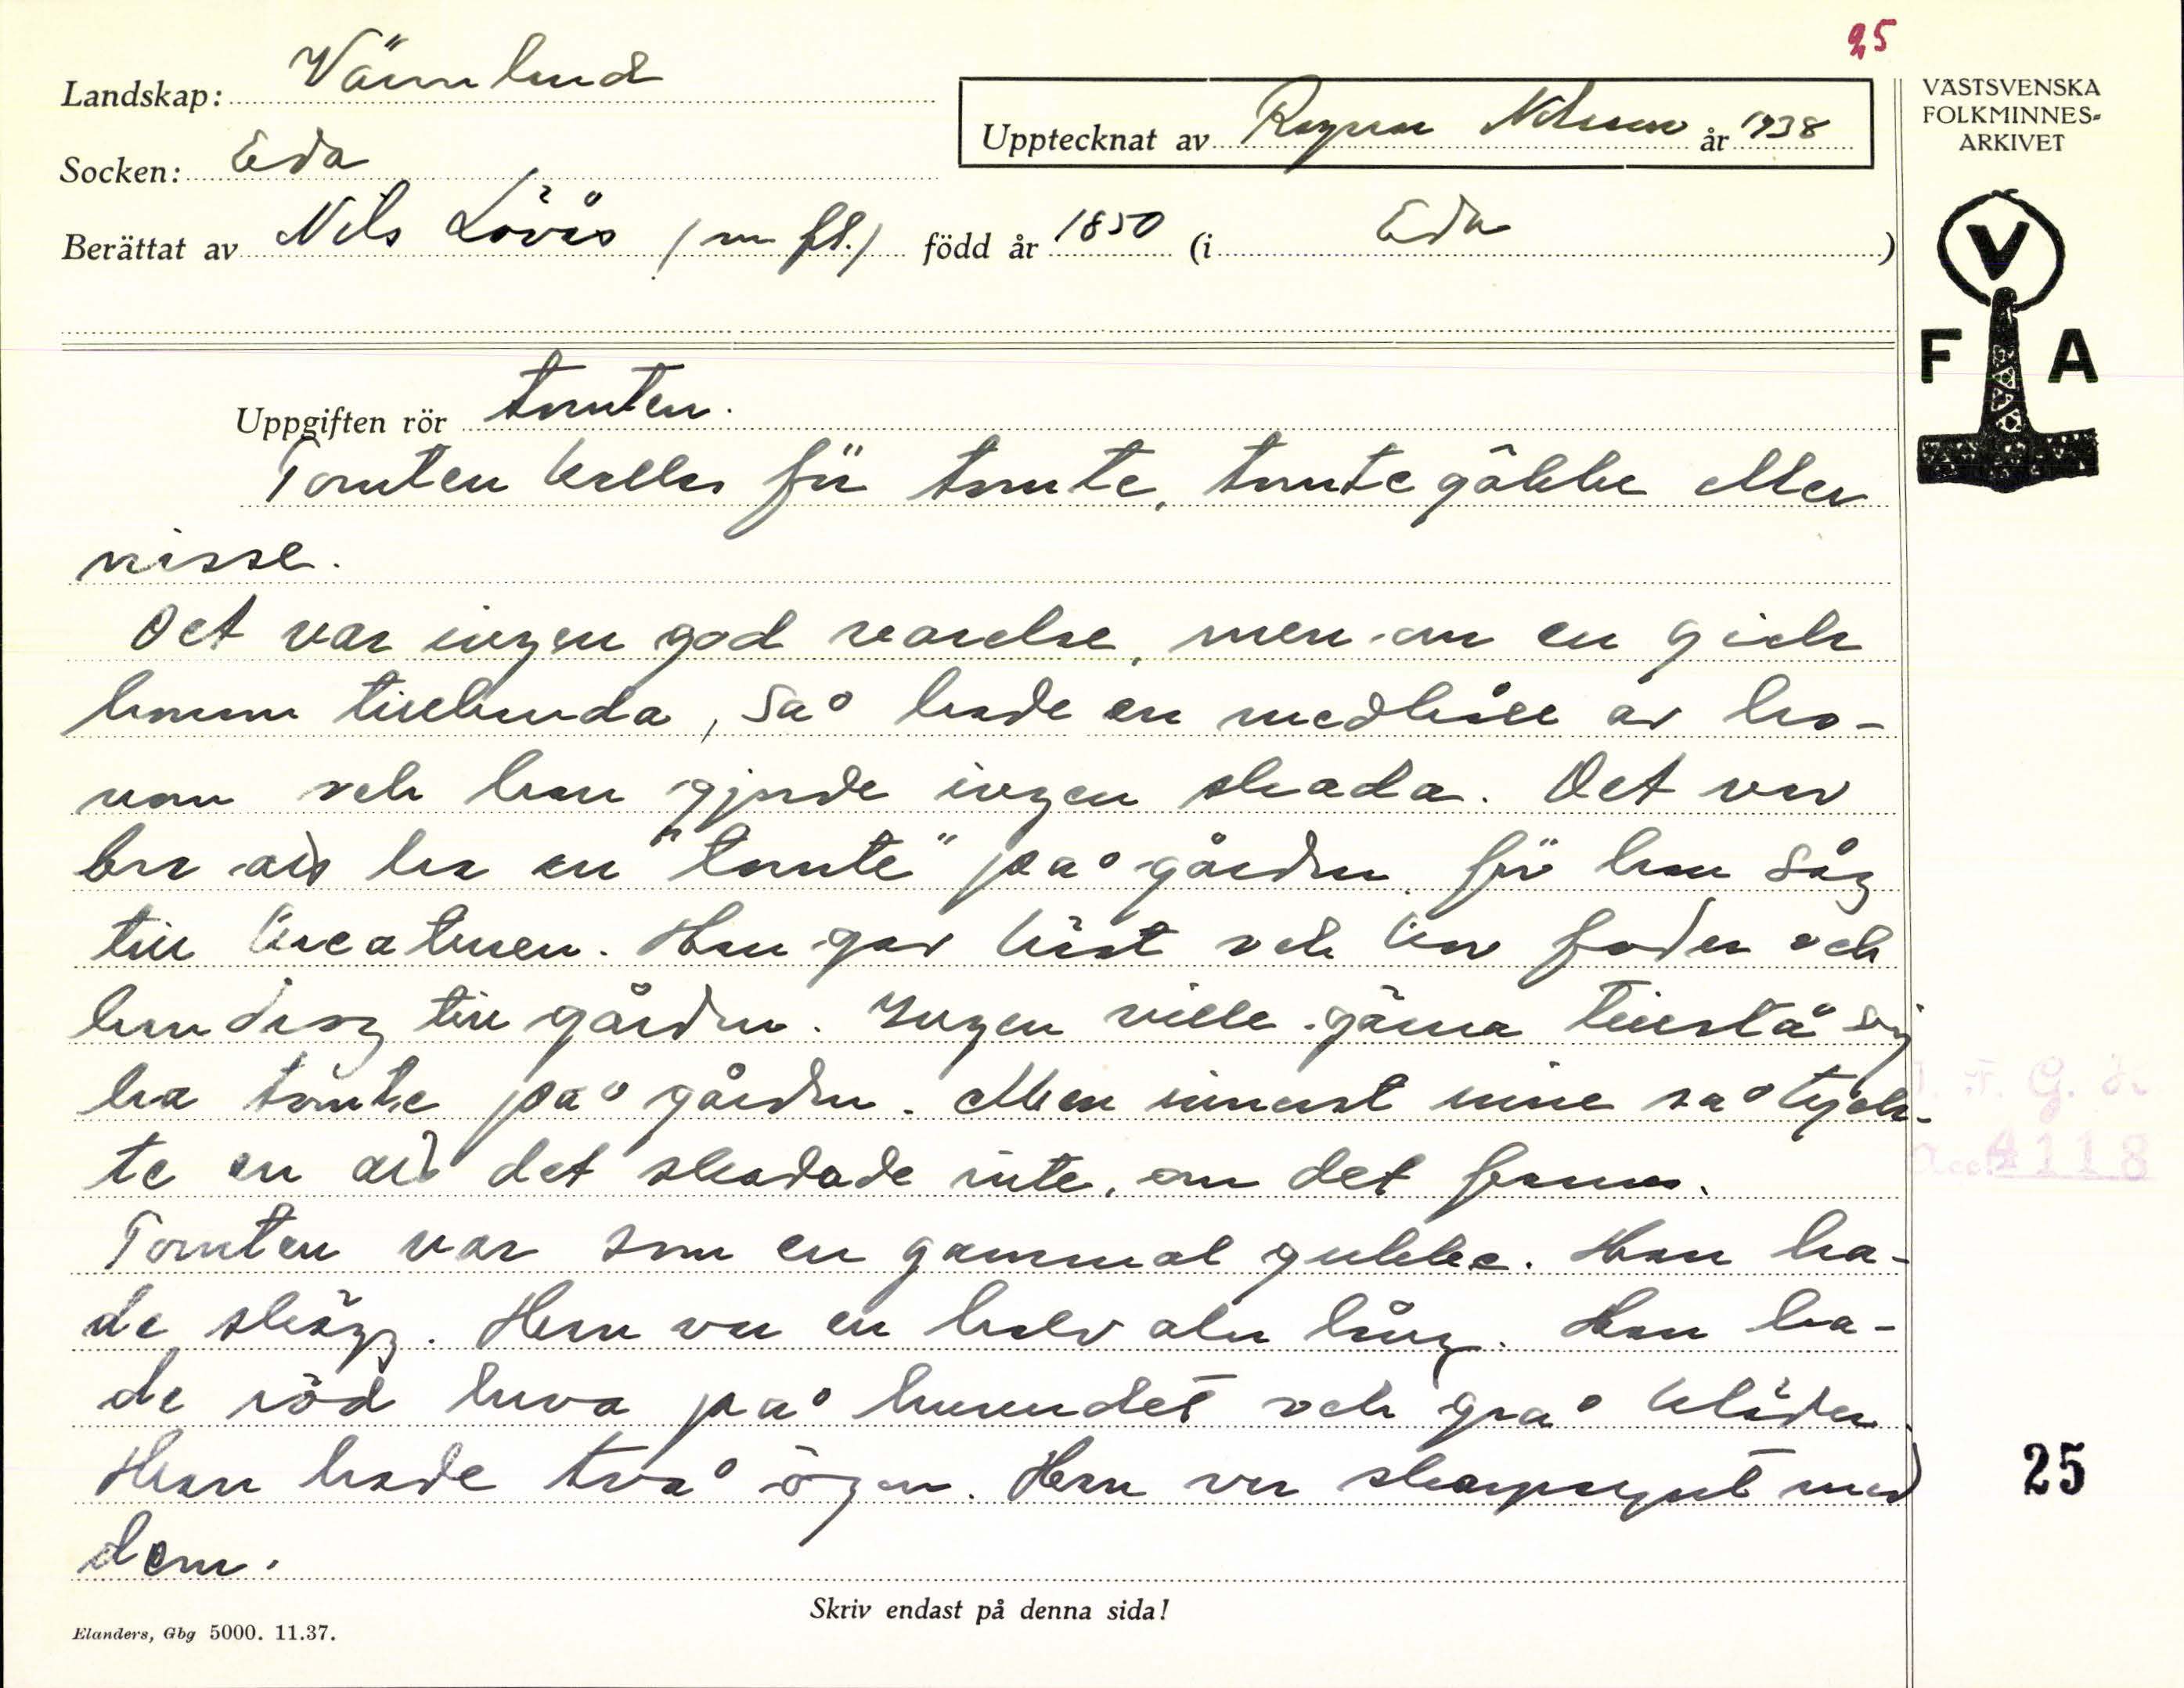 25
Landskap: Värmland
Upptecknat av Ragnar Nilsson år 1938
VÄSTSVENSKA
FOLKMINNES-
ARKIVET
Socken: Eda
Berättat av Nils Lövås (m fl.) född år 1850 (i Eda)
V
F A
Uppgiften rör tomten.
Tomten kallas för tomte, tomtegôbbe eller
nisse.
Det var ingen god varelse, men om en gick
honom tillhanda, så hade en medhåll av ho-
nom och han gjorde ingen skada. Det var
bra att ha en "tomte" på gården, för han såg
till kreaturen. Han gav häst och kor foder och
han drog till gården. Ingen ville gärna tillstå sig
ha tomte på gården. Men innerst inne så tyck-
te en att det skadade inte, om det fanns.
Tomten var som en gammal gubbe. Han ha-
de skägg. Han var en halv aln lång. Han ha-
de röd luva på huvudet och grå kläder.
Han hade två ögon. Han var skarpsynt med
dem.
I. F. G. s
acc. 4118
25
Skriv endast på denna sida!
Elanders, Gbg 5000. 11.37.